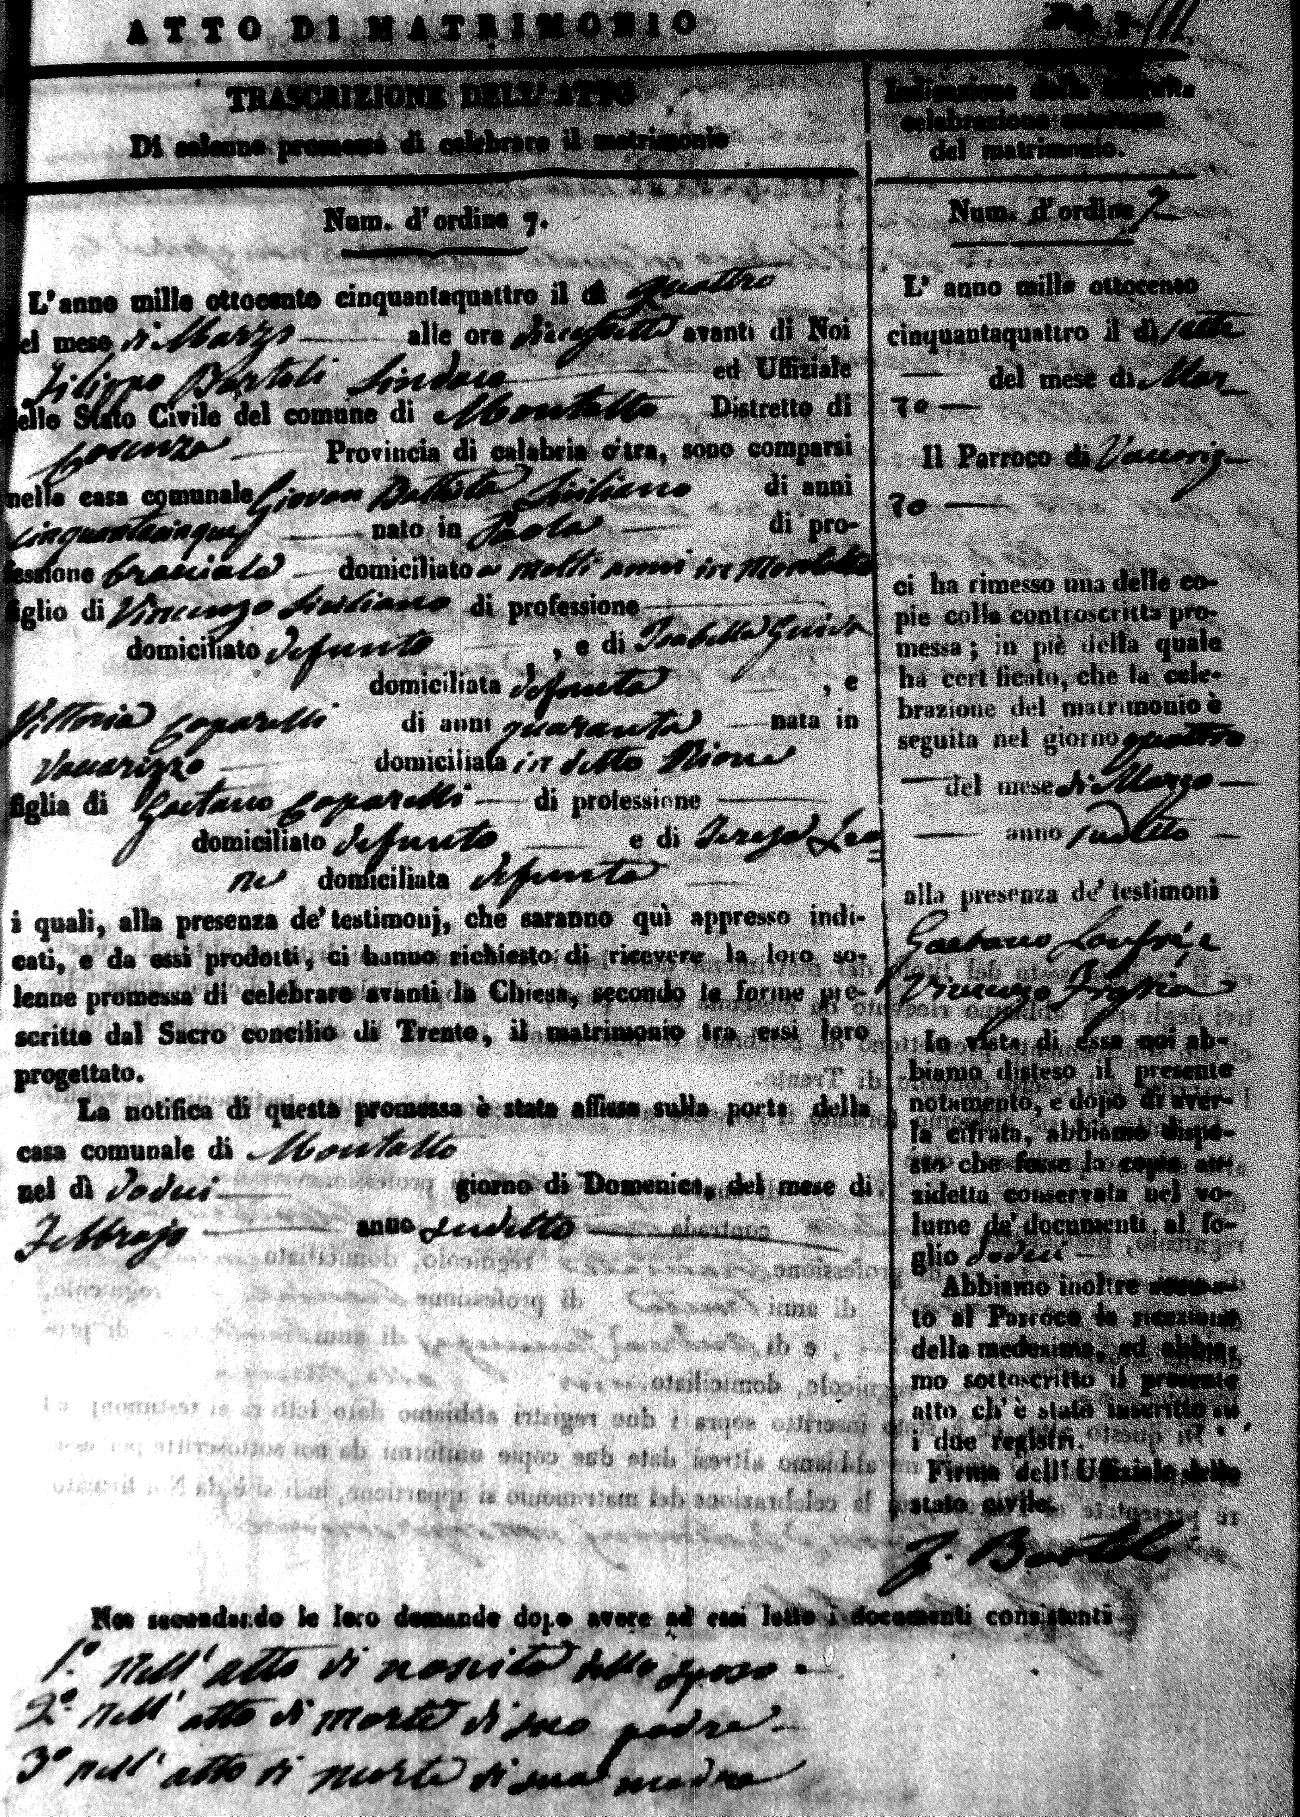 ATTO DI MATRIMONIO
TRASCRIZIONE DELL' ATTO
Di solenne promessa di celebrare il matrimonio
Num. d'ordine 7.
L'anno mille ottocento cinquantaquattro il dì quattro
el mese di Marzo alle ore diecisette avanti di Noi
Filippo Bartoli Sindaco ed Uffiziale
ello Stato Civile del comune di Montalto Distretto di
Cosenza Provincia di calabria citra, sono comparsi
nella casa comunale Giovan Battista Siciliano di anni
cinquantacinque nato in Paola di pro-
fessione bracciale domiciliato a molti anni in Montalto
figlio di Vincenzo Siciliano di professione
domiciliato defunto , e di Isabella Guido
domiciliata defunta , e
Vittoria Coparelli di anni quaranta nata in
Vaccarizzo domiciliata in detto Rione
figlia di Gaetano Coparelli di professione
domiciliato defunto e di Teresa Leo
ne domiciliata defunta
i quali, alla presenza de' testimonj, che saranno quì appresso indi-
cati, e da essi prodotti, ci hanno richiesto di ricevere la loro so-
lenne promessa di celebrare avanti la Chiesa, secondo le forme pre-
scritte dal Sacro concilio di Trento, il matrimonio tra essi loro
progettato.
La notifica di questa promessa è stata affissa sulla porta della
casa comunale di Montalto
nel dì dodici giorno di Domenica, del mese di
Febbrajo anno sudetto
Indicazione della seguita
celebrazione canonica
del matrimonio.
Num. d'ordine 7
L' anno mille ottocento
cinquantaquattro il dì sette
del mese di Mar
zo
Il Parroco di Vaccariz
zo
ci ha rimesso una delle co-
pie colla controscritta pro-
messa; in piè della quale
ha certificato, che la cele-
brazione del matrimonio è
seguita nel giorno quattro
del mese di Marzo
anno sudetto
alla presenza de' testimoni
Gaetano
Vincenzo
In vista di essa noi ab-
biamo disteso il presente
notamento, e dopo di aver-
la cifrata, abbiamo dispo-
sto che fosse la copia an-
zidetta conservata nel vo-
lume de' documenti al fo-
glio dodici
Abbiamo inoltre accusa-
to al Parroco la ricezione
della medesima, ed abbia-
mo sottoscritto il presente
atto ch' è stato inscritto su
i due registri.
Firma dell' Uffiziale dello
stato civile.
F. Bartoli
Noi secondando le loro domande dopo avere ad essi letto i documenti consistenti
1.º nell' atto di nascita dello sposo
2º nell' atto di morte di suo padre
3º nell' atto di morte di sua madre